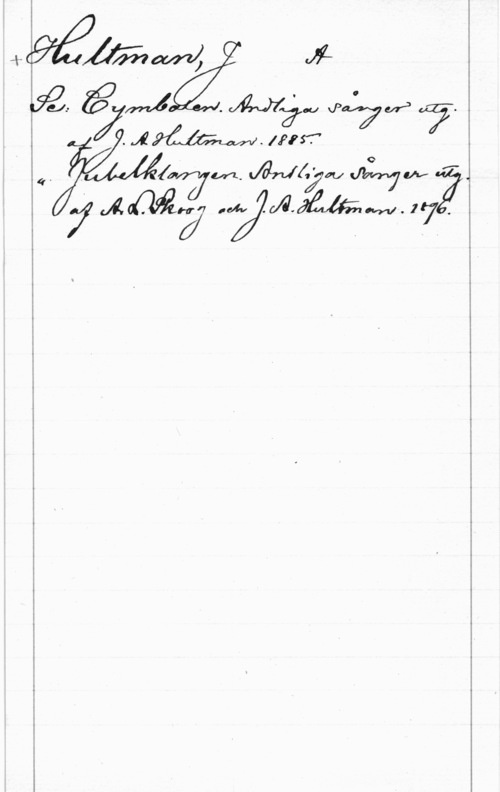 +Hultman, J A
Se: Cymbalen. Andliga sånger utg.
af J. A Hultman. 1885.
" Jubelklangen. Andliga Sånger utg.
af A. L. Skoog och J. A. Hultman. 1896.